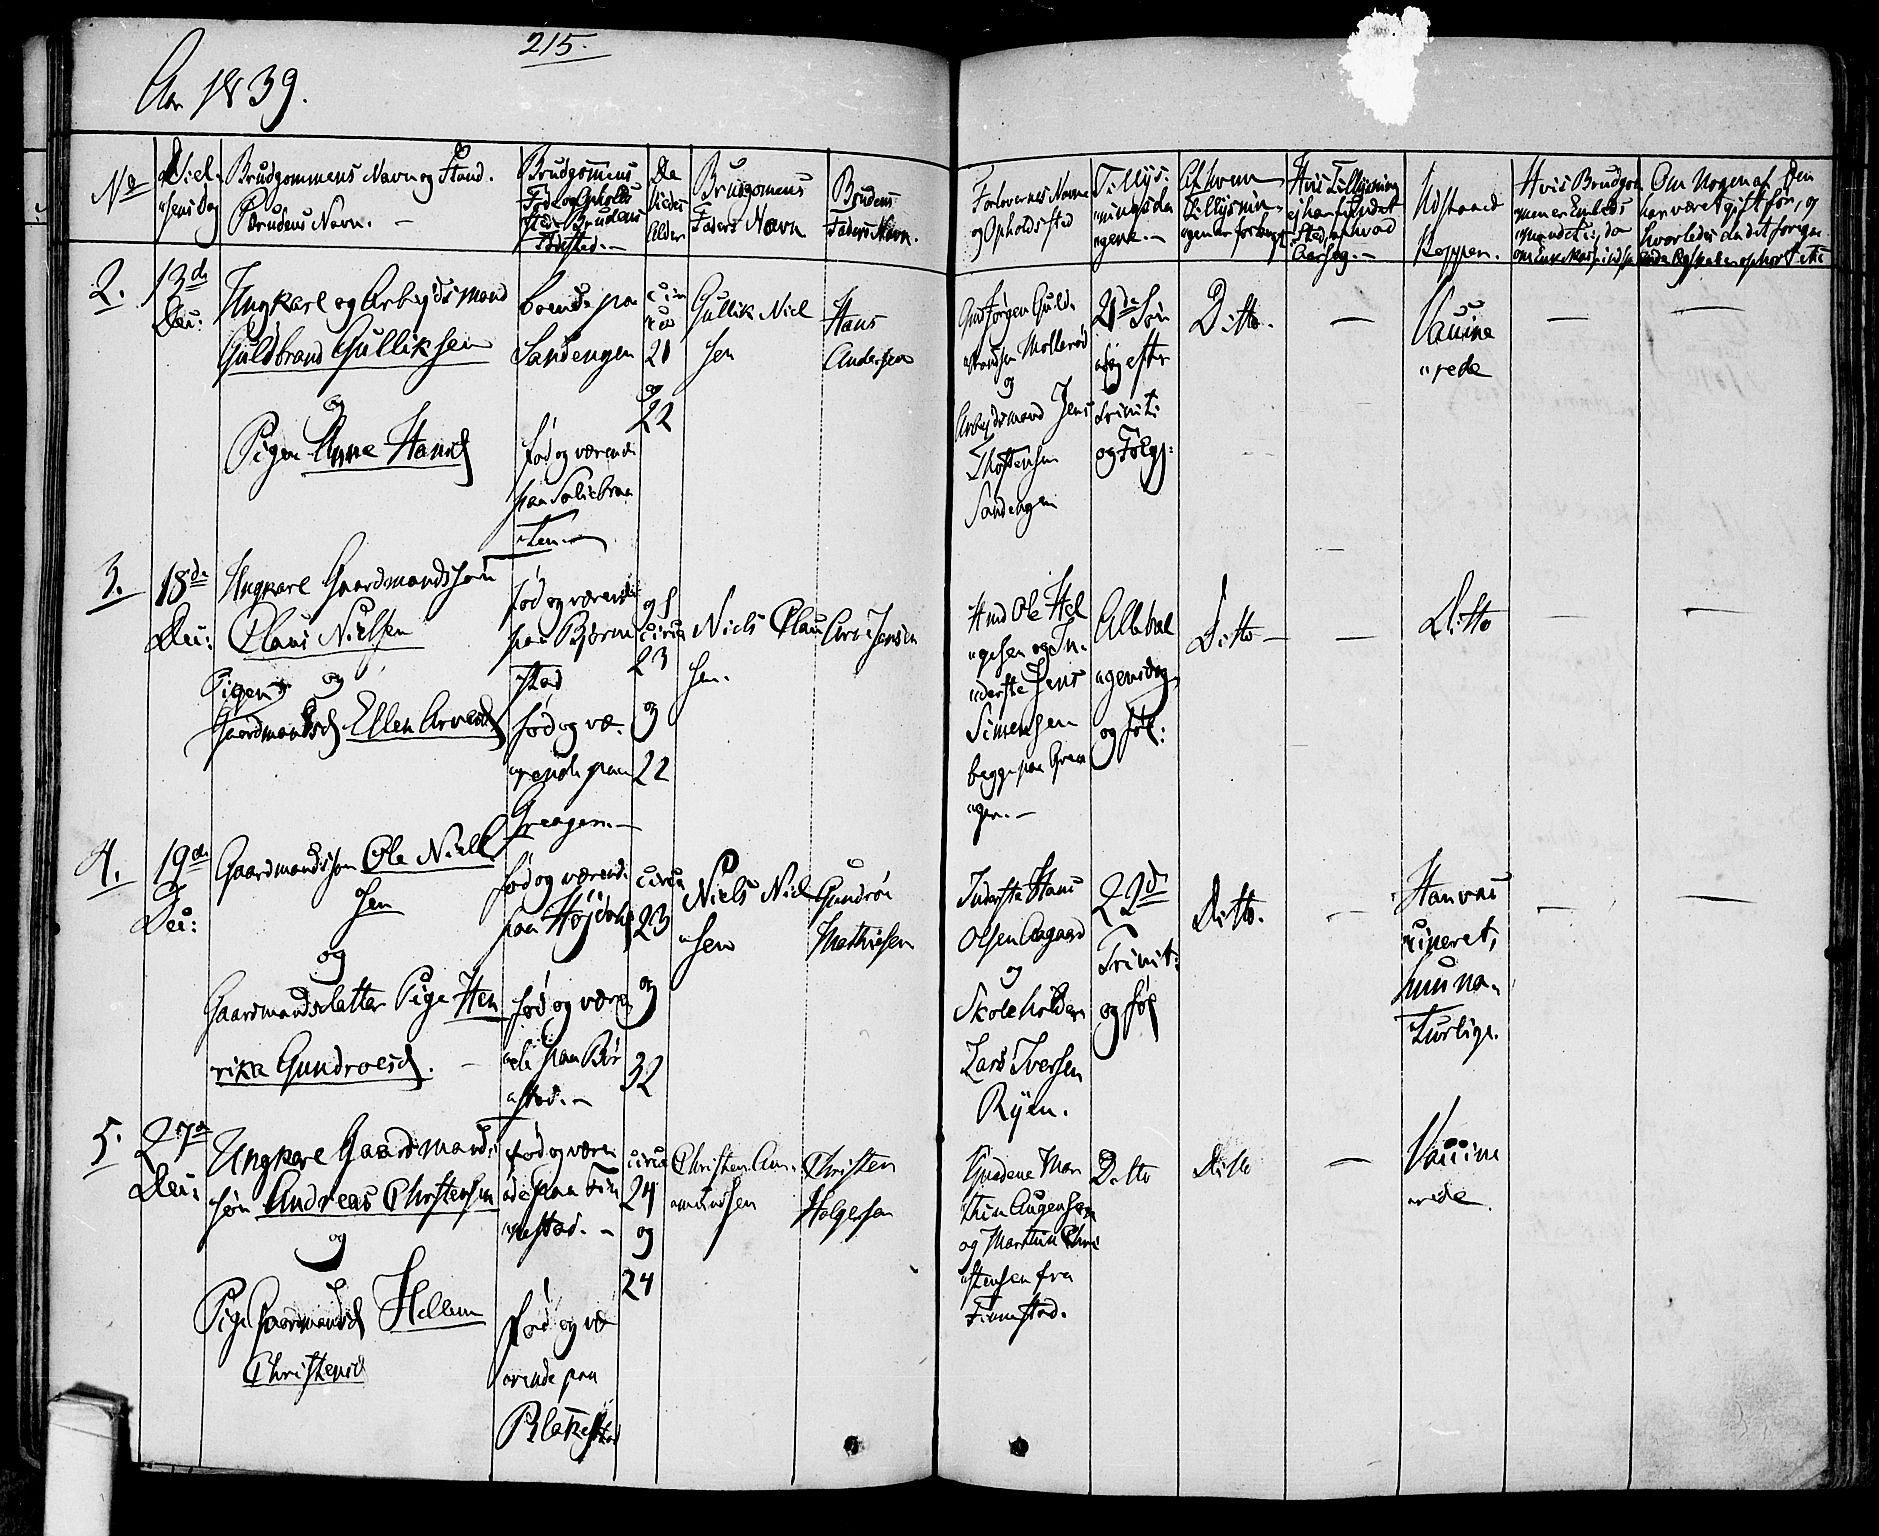 215.
Aar 1839.
No
Viel-
sens Dag
Brudgommens Navn og Stand.
Brudens Navn. —
Brudgommens
Føde og Opholds
sted. Brudens
Fødested. —
De
Vieder
Alder
Brudgomens
Faders Navn
Brudens
Faders Navn.
Forlovernes Navne
og Opholdssted
Tillys-
ningsda
gene. —
Af hvem
Tillysnin-
gen er forlangt
Hvis Tillysning
ej har fundet
Sted, af hvad
Aarsag. —
Udstaaed
Kopper.
Hvis Brudgom
men er Enkes
Om Nogen af Dem
har været gift før, og
2.
13de
Dec:
Ungkarl og Arbejdsmand
Guldbrand Gulliksen
og
Pigen Anne Hansd
boende paa
Sandengen
født og værende
paa Soliebraa
ten. —
circa
21
og
22
Gullik Niel
sen
Hans
Andersen
Gmd Jørgen Guld-
brandsen Mollerød
og
Arbejdsmand Jens
Thostensen
Sandengen
21de Søn
dag efter
Trinit:
og Følg:
Ditto.
—
Vaccine
rede
—
—
3.
18de
Dec:
Ungkarl Gaardmandssøn
Claus Nielsen
og
Pigen
Gaardmandsd Ellen Arvesd
født og værende
paa Bjørn
stad
født og væ-
rende paa
Greager. —
circa
23
og
22
Niels Clau
sen.
Arve Jensen
Gmd Ole Hel
gesen og In-
derste Jens
Simensen
begge paa Grea
ger. —
Allehel
gensdag
og føl:
Ditto —
—
Ditto
—
—
4.
19de
Dec:
Gaardmandssøn Ole Niel
sen
og
Gaardmandsdatter Pige Hen
rikke Gundroesd. —
født og værende
paa Højdahl
født og være
de paa Bør
stad. —
circa
23
og
32
Niels Niel
sen
Gundroe
Mathiesen
Inderste Hans
Olsen Aagaard
og
Skoleholder
Lars Iversen
Ryen.
22de
Trinit:
og føl
Ditto.
—
Han vac
cineret,
hun na-
turlige.
—
—
5.
27de
Dec:
Ungkarl Gaardmand-
søn Andreas Christensen
og
Pige Gaardmandsd Hellene
Christensd
født og væren
de paa Fin
nestad. —
født og væ
rende paa
Blakestad
circa
24
og
24
Christen Am-
mundsen
Christen
Holgersen
Gmdene Mar
thin Augensen
og Marthin Chri
stensen fra
Finnestad.
Ditto
Ditto
—
Vaccine
rede.